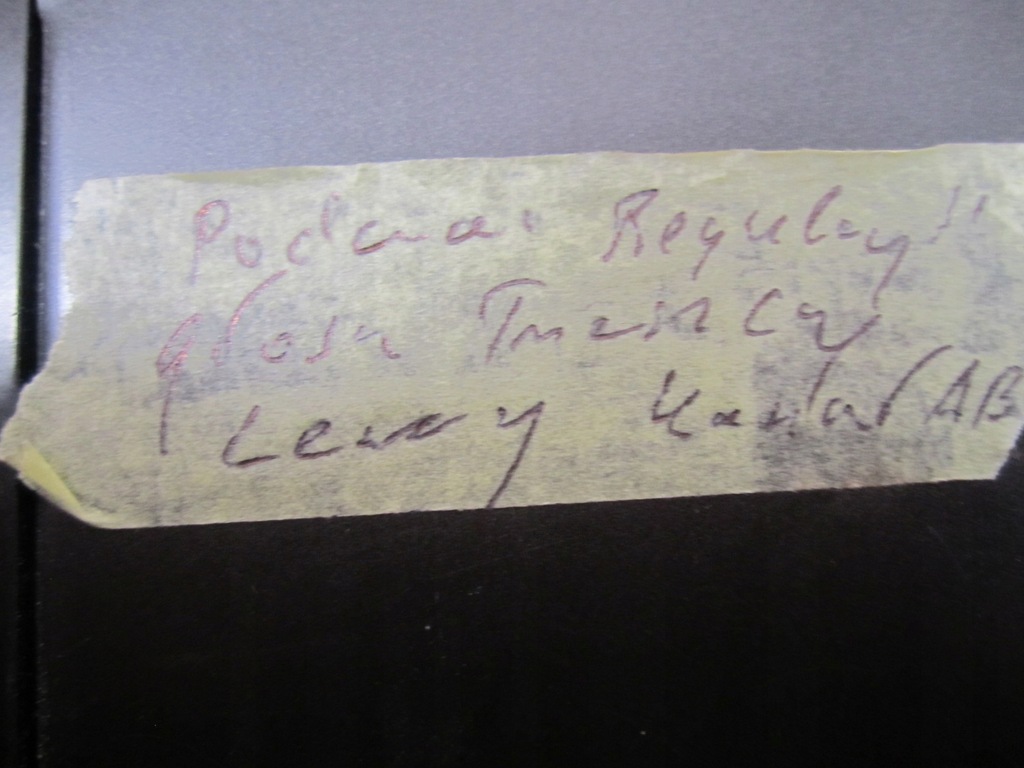 Podczas Regulacji
głosu Trzeszczy
Lewy Kanał (AB